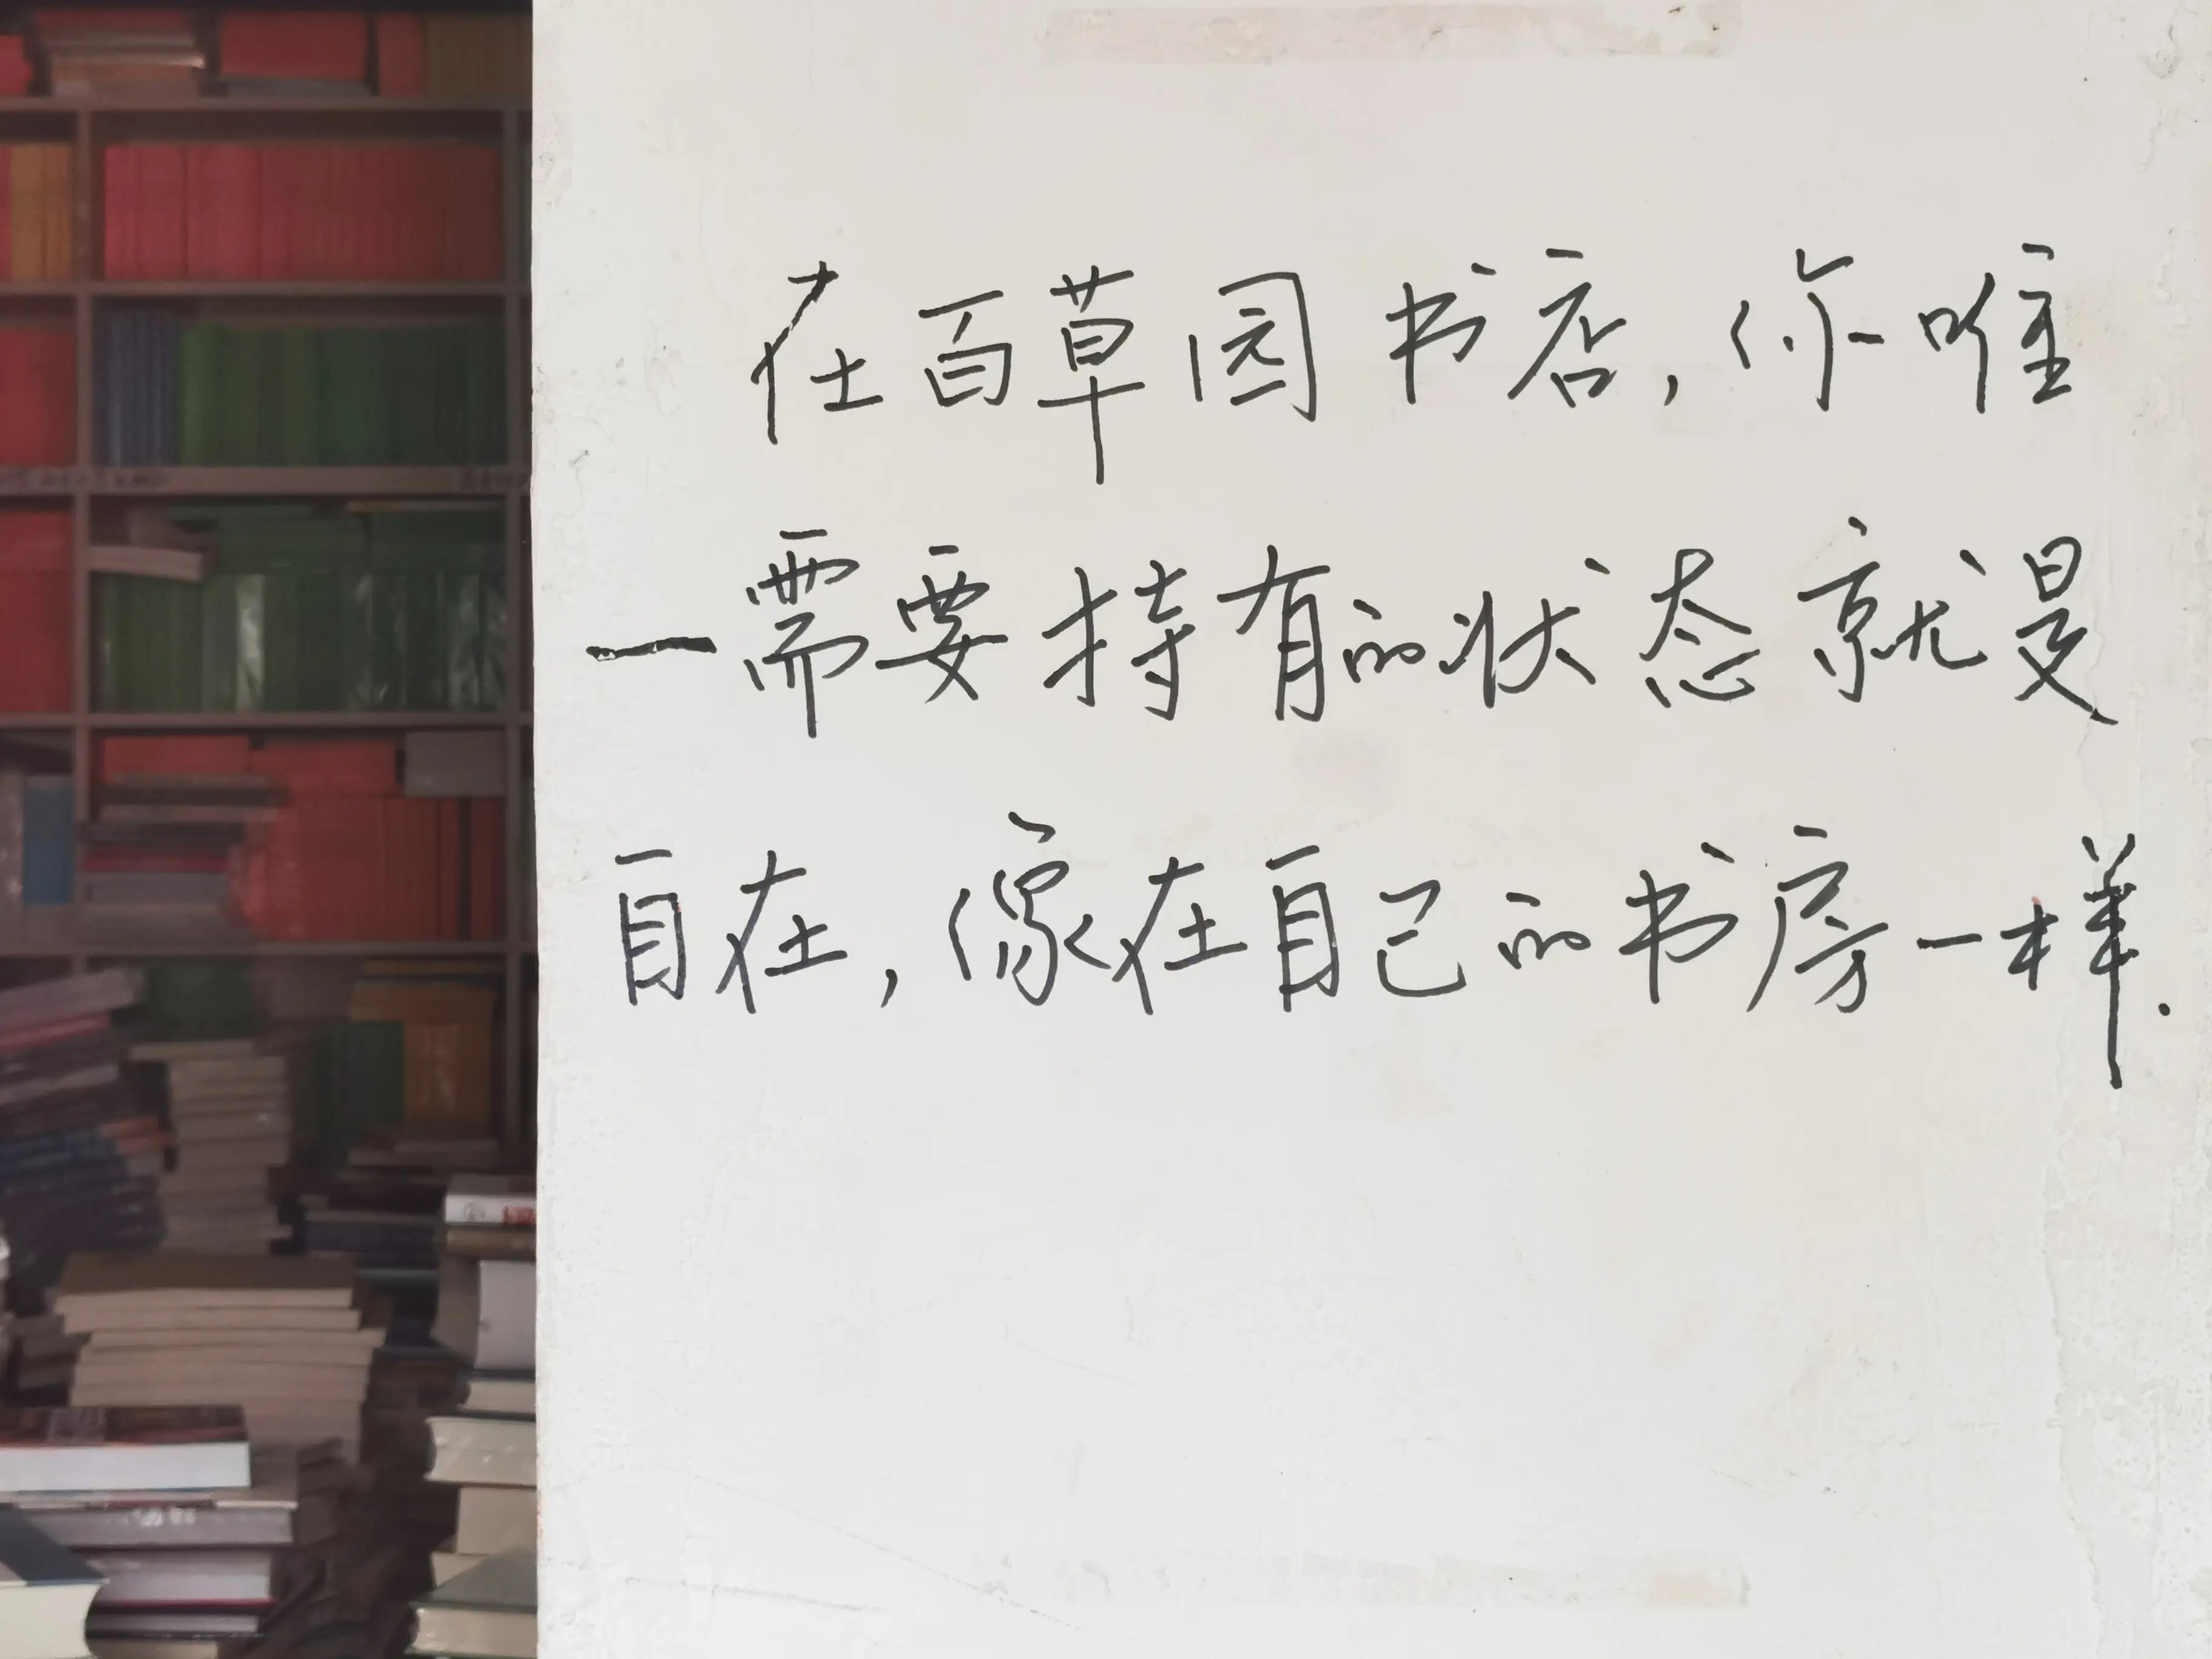 在百草园书店,你唯
一需要持有的状态就是
自在,像在自己的书房一样.